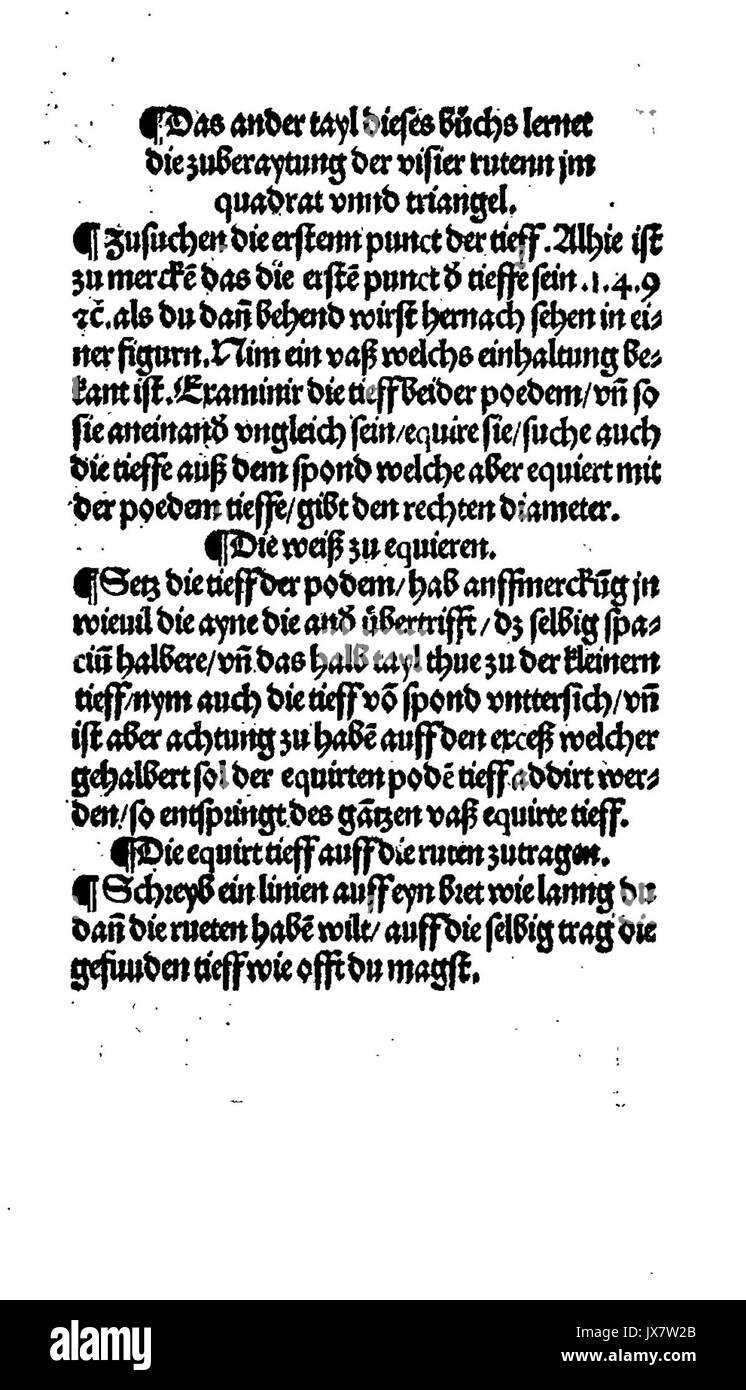 ¶Das ander tayl dieses bůchs lernet
die zuberaytung der visier rutenn jm
quadrat vnnd triangel.
¶Zusuchen die erstenn punct der tieff. Alhie ist
zu merckē das die erstē punct d̄ tieffe sein .1.4.9
⁊c̄. als du dañ behend wirst hernach sehen in ei⸗
ner figurn. Nim ein vaß welchs einhaltung be⸗
kant ist. Examinir die tieff beider poedem/ vñ so
sie aneinand̄ vngleich sein/ equire sie/ suche auch
die tieffe auß dem spond welche aber equiert mit
der poedem tieffe/ gibt den rechten diameter.
¶Die weiß zu equieren.
¶Setz die tieff der podem/ hab anffmerckūg jn
wieuil die ayne die and̄ übertrifft/ dz selbig spa⸗
ciū halbere/ vñ das halb tayl thue zu der kleinern
tieff/ nym auch die tieff vō spond vnttersich/ vñ
ist aber achtung zu habē auff den exceß welcher
gehalbert sol der equirten podē tieff addirt wer⸗
den/ so entspringt des gātzen vaß equirte tieff.
¶Die equirt tieff auff die ruten zutragen.
¶Schreyb ein linien auff eyn bret wie lanng du
dañ die rueten habē wilt/ auff die selbig trag die
gefunden tieff wie offt du magst.
alamy
alamy stock photo
JX7W2B
www.alamy.com